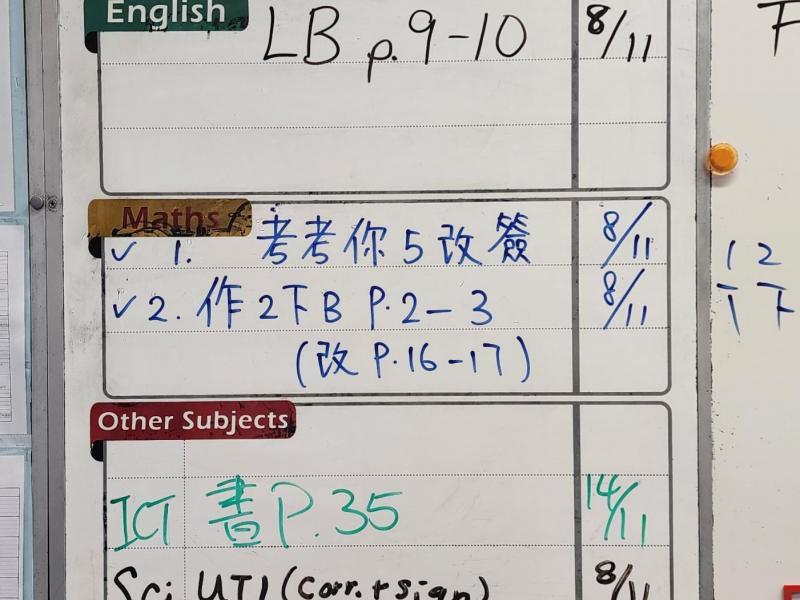 English
LB p.9-10 8/11
Maths
✓ 1. 考考你5改簽 8/11
✓ 2. 作2下B P.2-3 8/11
(改 P.16-17)
Other Subjects
ICT 書P.35 14/11
Sci UT1 (corr. + sign) 8/11